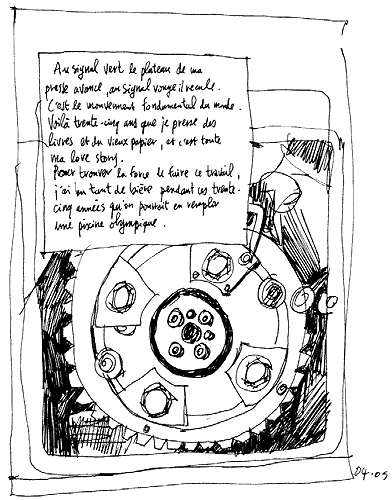 Au signal vert le plateau de ma
presse avance, au signal rouge il recule.
C'est le mouvement fondamental du monde.
Voilà trente-cinq ans que je presse des
livres et du vieux papier, et c'est toute
ma love story.
Pour trouver la force de faire ce travail,
j'ai bu tant de bière pendant ces trente-
cinq années qu'on pourrait en remplir
une piscine olympique.
04.09